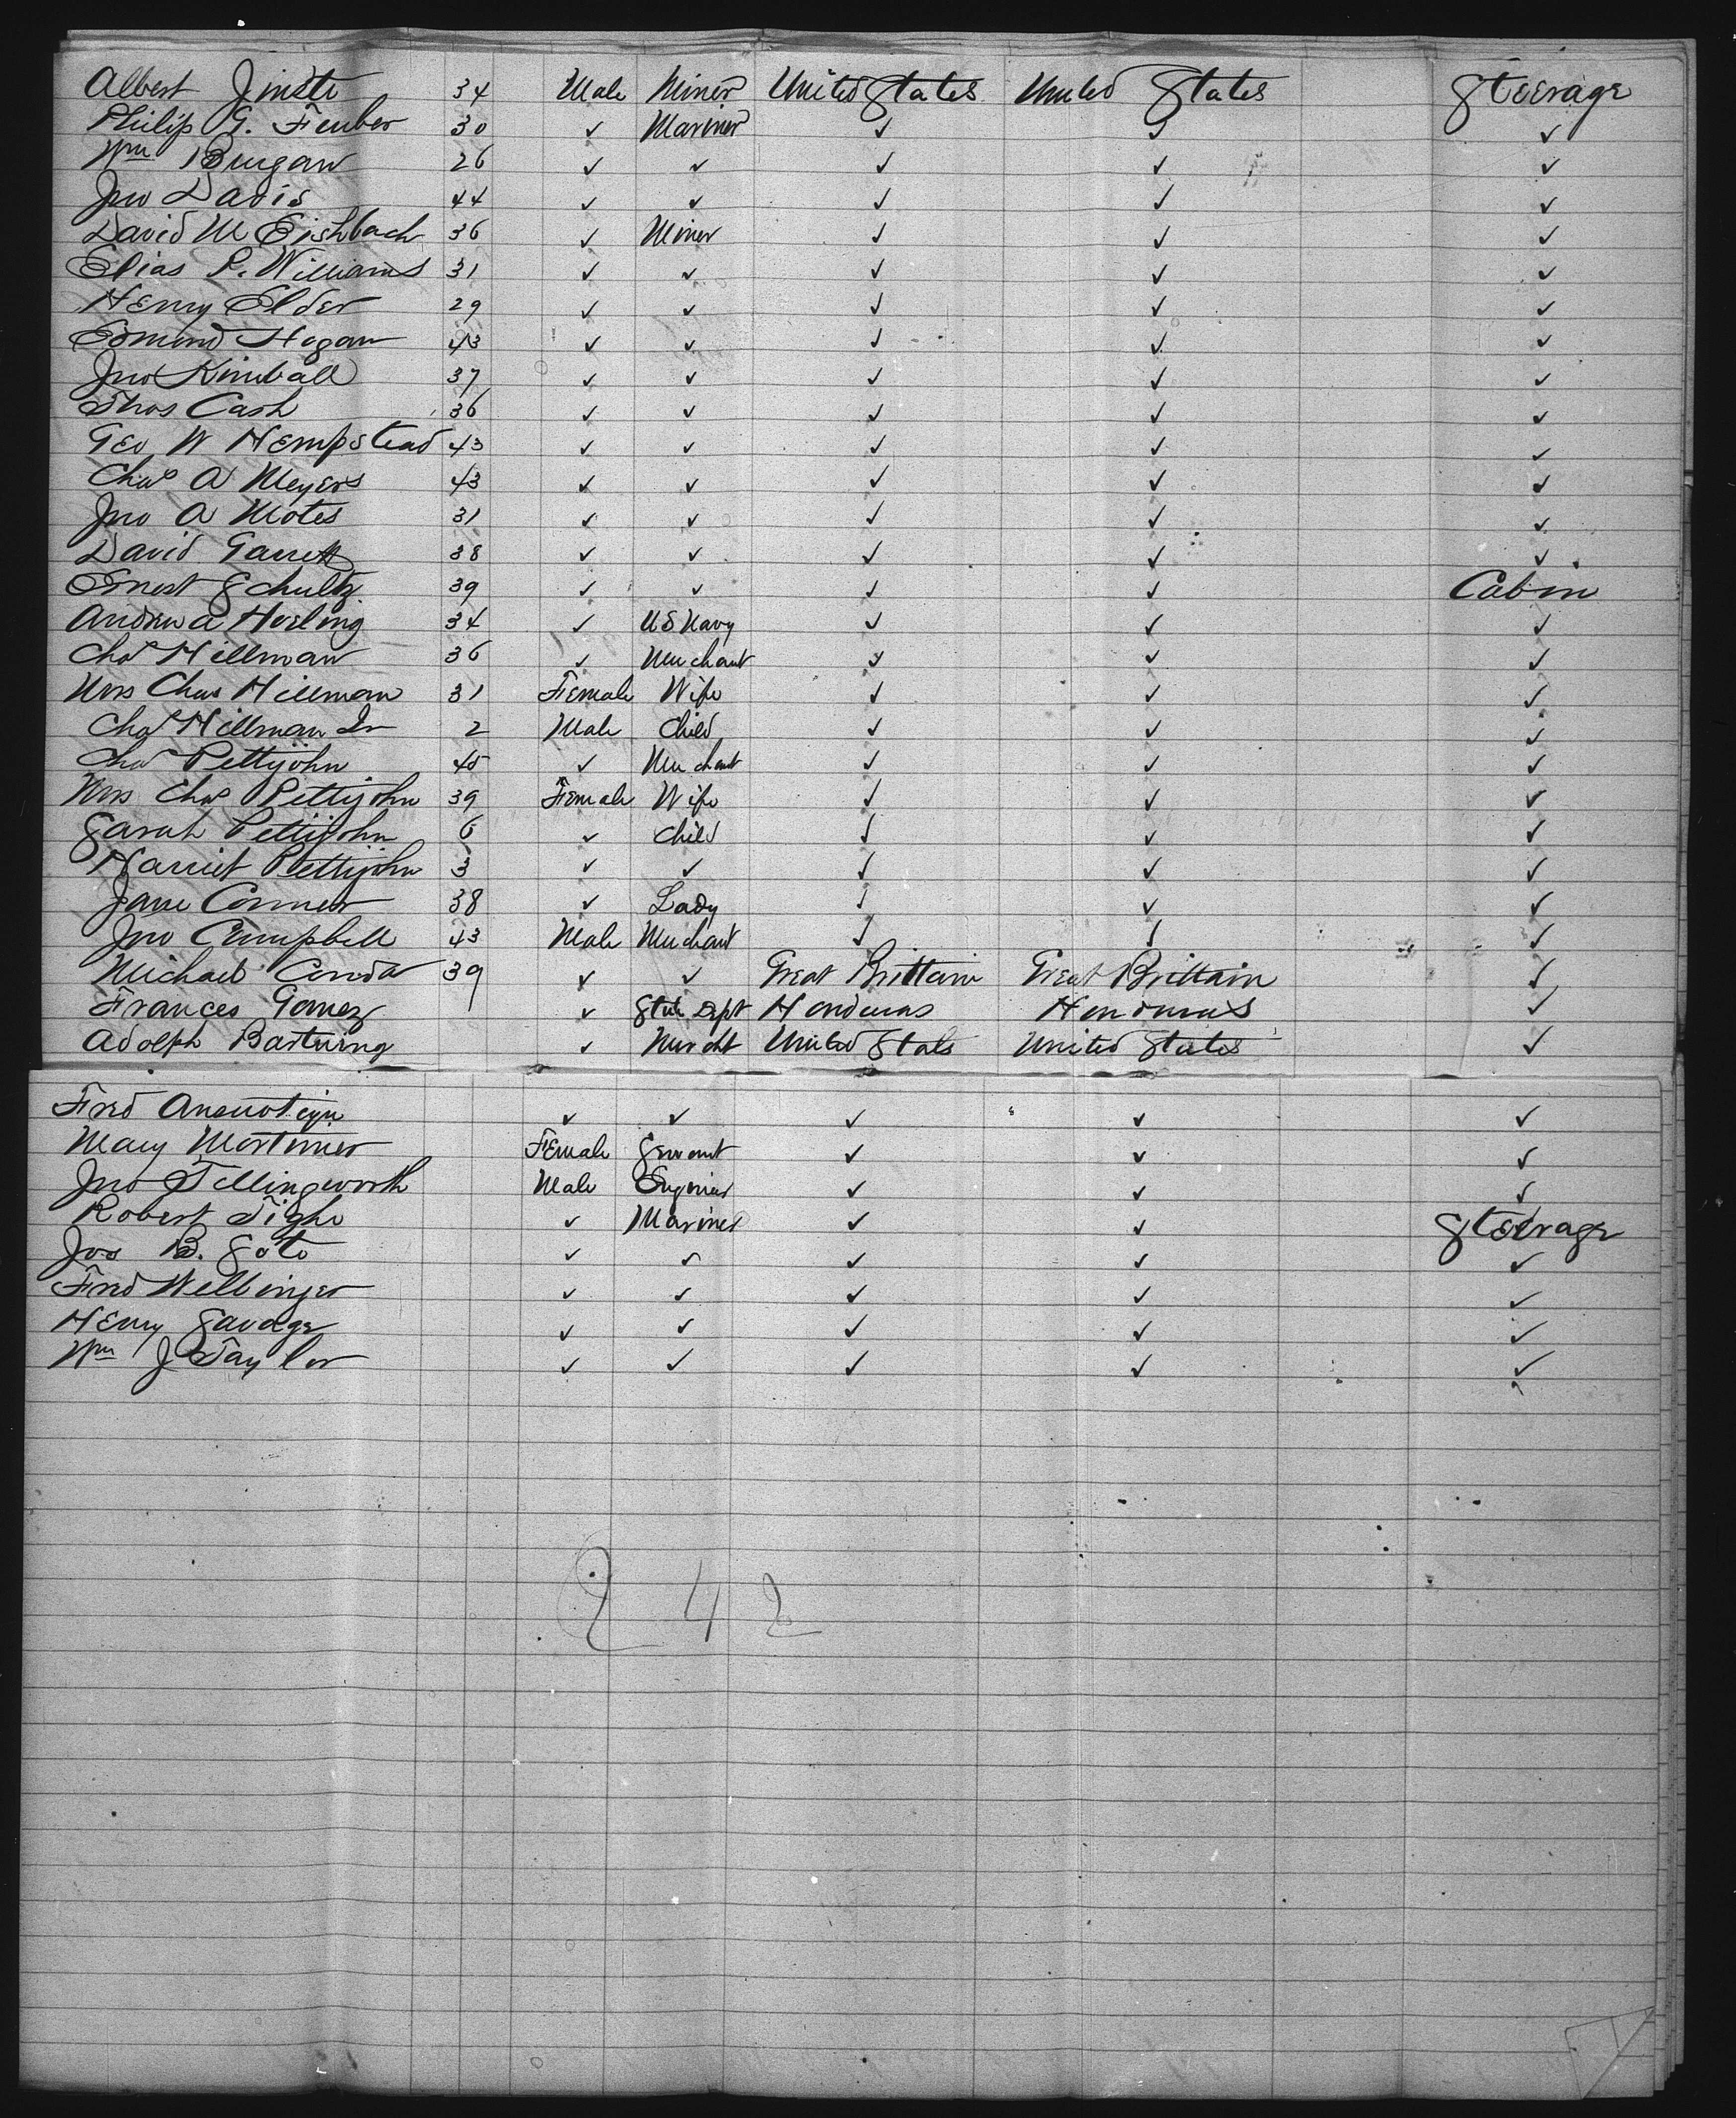 Albert Jinste 34 Male Miner United States United States Steerage
Philip G. Feuber 30 ✓ Mariner ✓ ✓ ✓
Wm Brugan 26 ✓ ✓ ✓ ✓ ✓
Jno Davis 44 ✓ ✓ ✓ ✓ ✓
David M Eishbach 36 ✓ Miner ✓ ✓ ✓
Elias P. Williams 31 ✓ ✓ ✓ ✓ ✓
Henry Elder 29 ✓ ✓ ✓ ✓ ✓
Edmond Hogan 43 ✓ ✓ ✓ ✓ ✓
Jno Kimball 37 ✓ ✓ ✓ ✓ ✓
Thos Cash 36 ✓ ✓ ✓ ✓ ✓
Geo W Hempstead 43 ✓ ✓ ✓ ✓ ✓
Chas A Meyers 43 ✓ ✓ ✓ ✓ ✓
Jno A Motes 31 ✓ ✓ ✓ ✓ ✓
David Garrett 38 ✓ ✓ ✓ ✓ ✓
Ernest Schultz 39 ✓ ✓ ✓ ✓ Cabin
Andrew Herling 34 ✓ US Navy ✓ ✓ ✓
Chas Hillman 36 ✓ Merchant ✓ ✓ ✓
Mrs Chas Hillman 31 Female Wife ✓ ✓ ✓
Chas Hillman Jr 2 Male Child ✓ ✓ ✓
Chas Pettijohn 45 ✓ Merchant ✓ ✓ ✓
Mrs Chas Pettijohn 39 Female Wife ✓ ✓ ✓
Sarah Pettijohn 6 ✓ Child ✓ ✓ ✓
Harriet Pettijohn 3 ✓ ✓ ✓ ✓ ✓
Jane Conner 38 ✓ Lady ✓ ✓ ✓
Jno Campbell 43 Male Merchant ✓ ✓ ✓
Michael Conda 39 ✓ ✓ Great Brittain Great Brittain ✓
Frances Gomez ✓ State Dept Honduras Honduras ✓
Adolph Bartning ✓ Mercht United Stats United States ✓
Fred ✓ ✓ ✓ ✓ ✓
Mary Mortimer Female Servant ✓ ✓ ✓
Jno Tellingworth Male Engineer ✓ ✓ ✓
Robert Tighe ✓ Mariner ✓ ✓ Steerage
Jos B. Soto ✓ ✓ ✓ ✓ ✓
Fred Wellinger ✓ ✓ ✓ ✓ ✓
Henry Savage ✓ ✓ ✓ ✓ ✓
Wm J Taylor ✓ ✓ ✓ ✓ ✓
242